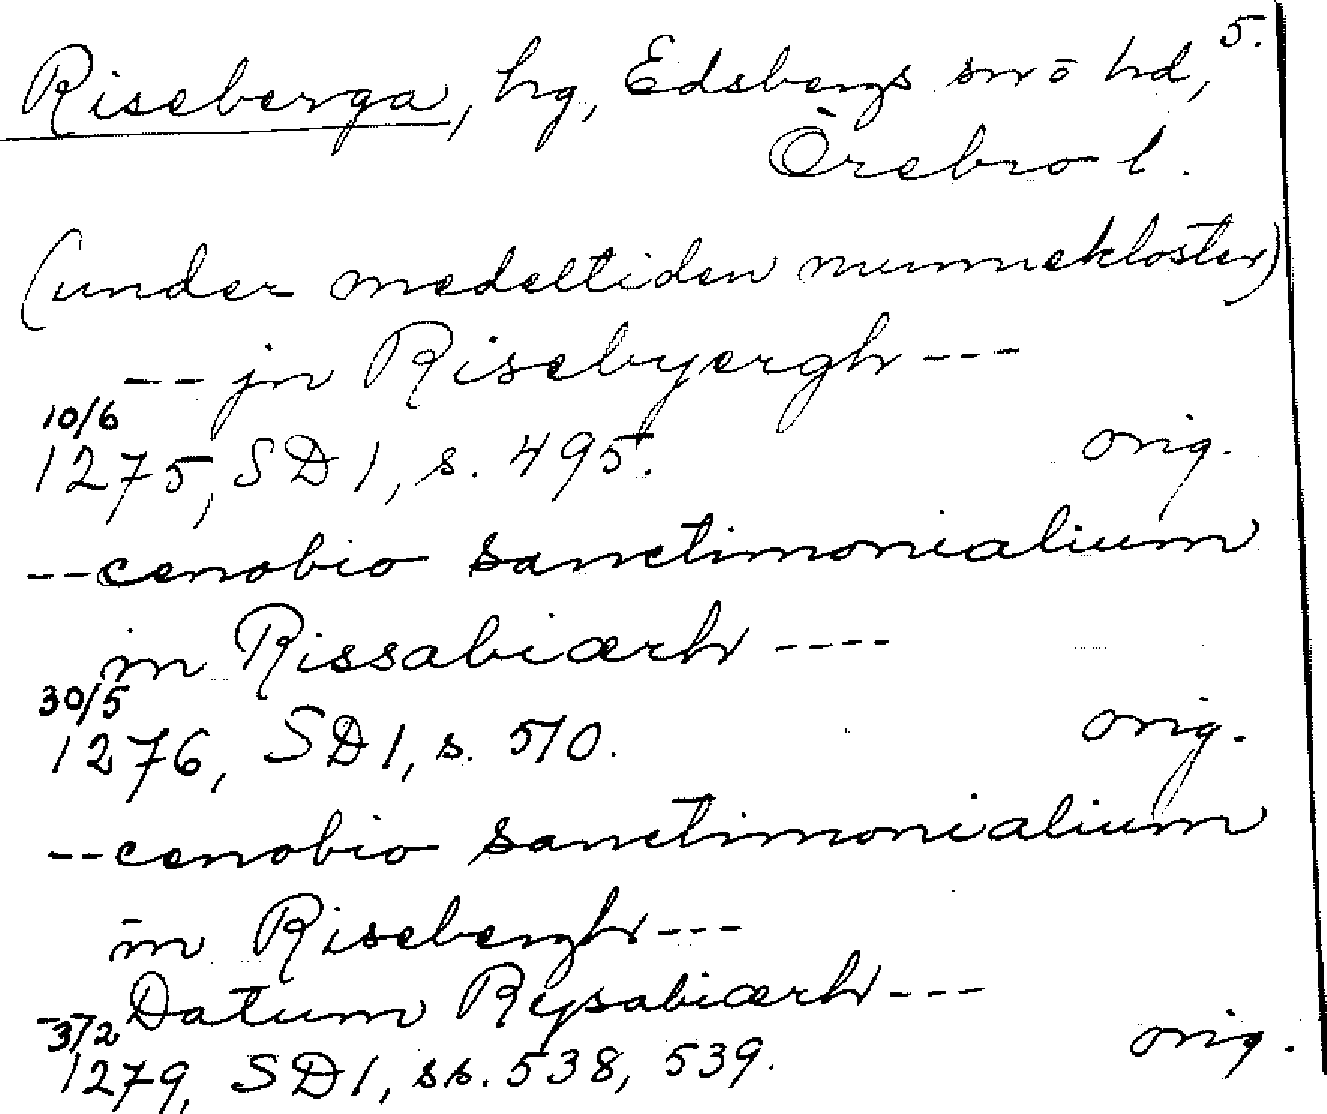 5.
Riseberga, hg, Edsbergs sn o hd,
Örebro l.
(under medeltiden nunnekloster)
-- jn Risebyergh ---
10/6
1275, SD 1, s. 495. orig.
-- cenobio sanctimonialium
in Rissabiærh ----
30/5
1276, SD 1, s. 510. orig.
-- cenobio sanctimonialium
in Risebergh ---
-- Datum Rysabiærh ---
3/2
1279, SD 1, ss. 538, 539. orig.